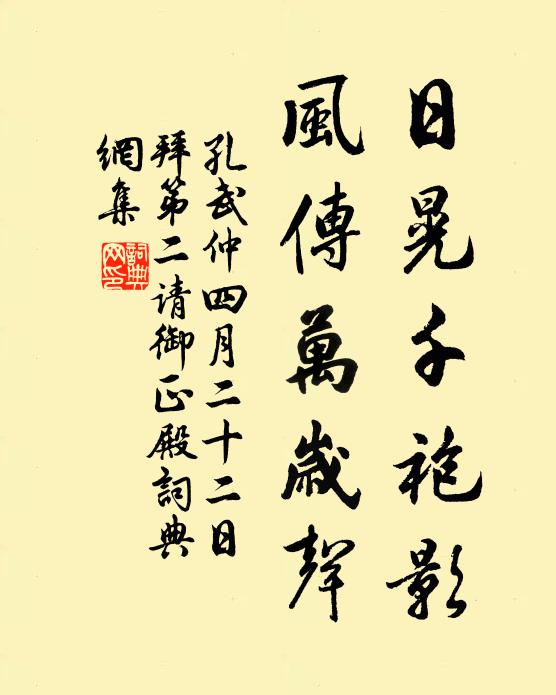 日晃千袍影
風傳萬歲聲
孔武仲四月二十二日
拜第二请御正殿詞典
網集
詞典网印